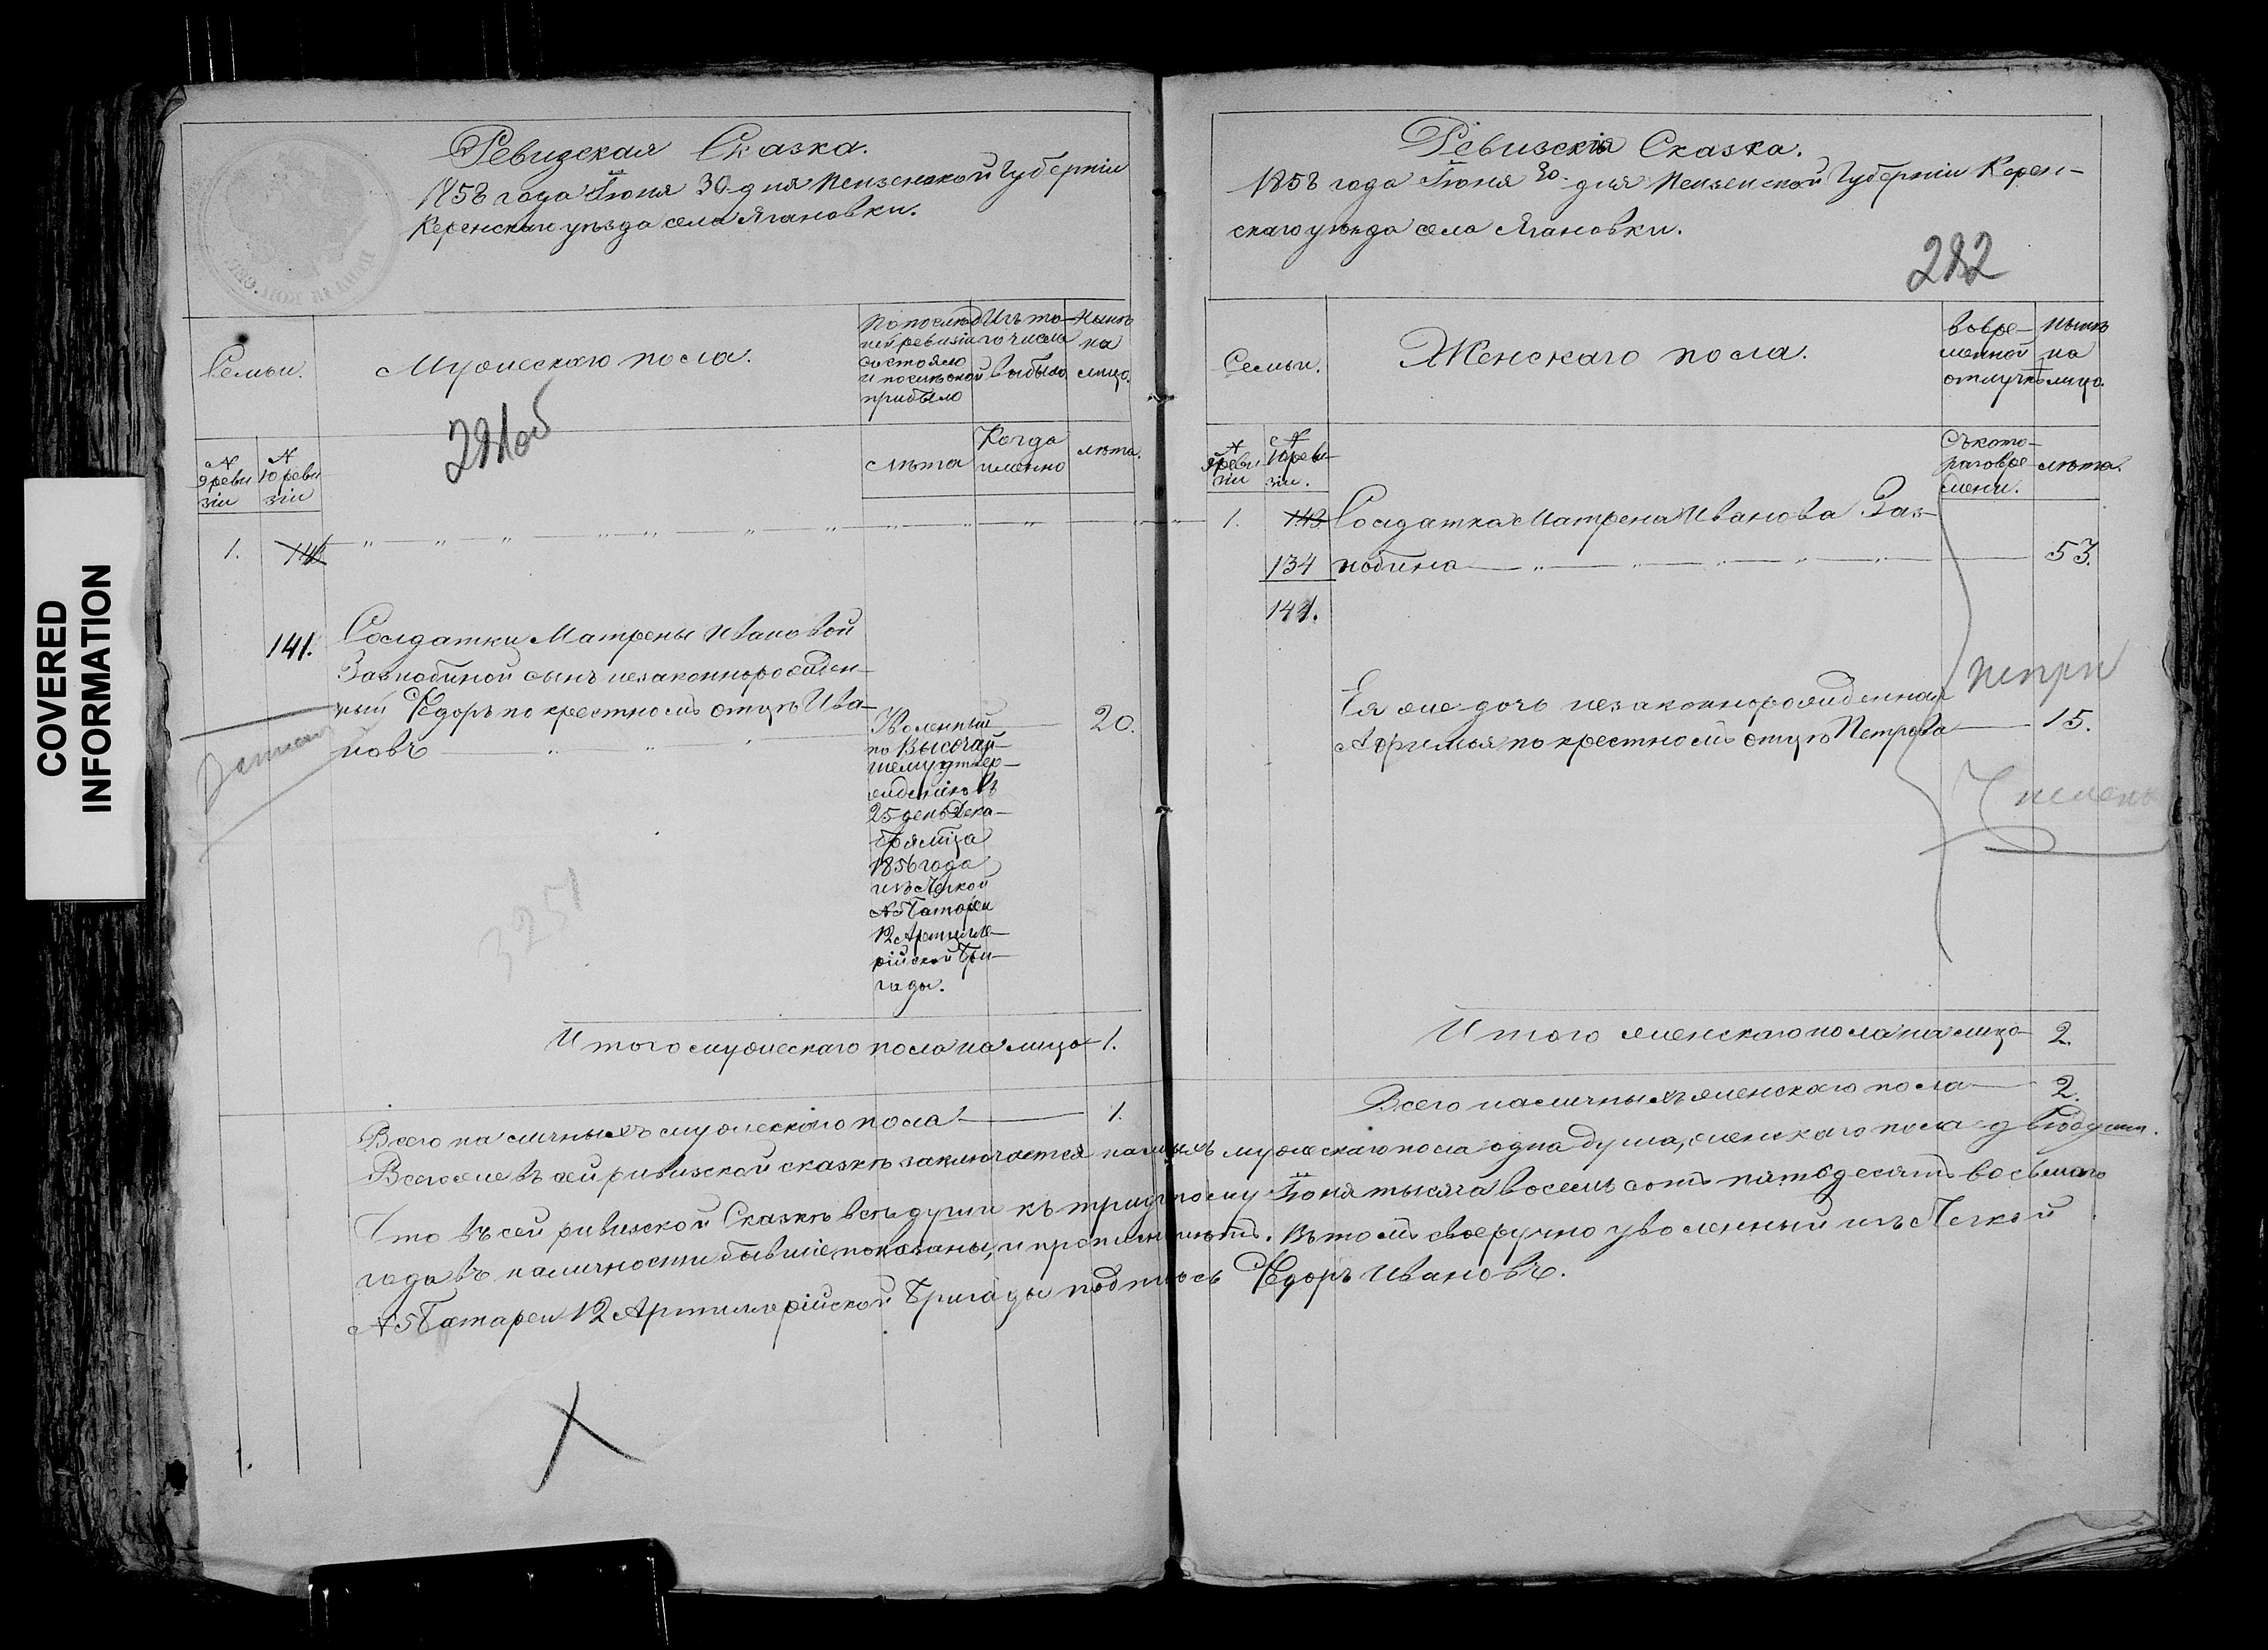 COVERED
INFORMATION
Ревизская Сказка.
1858 года Іюня 30 дня Пензенской Губерніи
Керенскаго уѣзда села Ягановки.
Семьи.
Мужескаго пола.
По послѣд
ней ревизіи
состояло
и послѣ оной
прибыло
Изъ то
го числа
выбыло
Нынѣ
на
лицо.
281 об
№
9 реви
зіи
№
10 реви
зіи
лѣта
Когда
именно
лѣта.
1. 142
141. Солдатки Матрены Ивановой
Зазнобиной сынъ незаконнорожден-
ный Ѳедоръ по крестномъ отцѣ Ива-
новъ 20.
Уволенный
по Высочай-
шему утвер-
жденію въ
25 день Дека-
бря мѣца
1856 года
изъ Легкой
№ 5 Батареи
12 Артилле-
рійской Бри-
гады.
3251
Итого мужескаго пола на лицо 1.
Всего наличныхъ мужескаго пола 1.
Ревизскія Сказка.
1858 года Іюня 30 дня Пензенской Губерніи Керен-
скаго уѣзда села Ягановки.
282
Семьи.
Женскаго пола.
Во вре-
менной
отлучкѣ
Нынѣ
на
лицо.
№
9 реви
зіи
№
10 реви-
зіи.
Съ кото-
раго вре-
мени.
лѣта.
1. 142. Солдатка Матрена Иванова Заз-
134 нобина 53.
141.
Ея же дочь незаконнорожденная
Афимья по крестномъ отцѣ Петрова 15.
Итого женскаго пола на лицо 2.
Всего наличныхъ женскаго пола 2.
Всего же въ сей ривизской сказкѣ заключается налицо мужескаго пола одна душа, женскаго пола двѣ души.
Что въ сей ривизской Сказкѣ всѣ души къ тридцатому Іюня тысяча восемь сотъ пятьдесятъ восьмаго
года въ наличности бывшіе показаны, и прописныхъ нѣтъ. Въ томъ своеручно уволенный изъ Легкой
№ 5 Батареи 12 Артиллерійской Бригады подписъ Ѳедоръ Ивановъ.